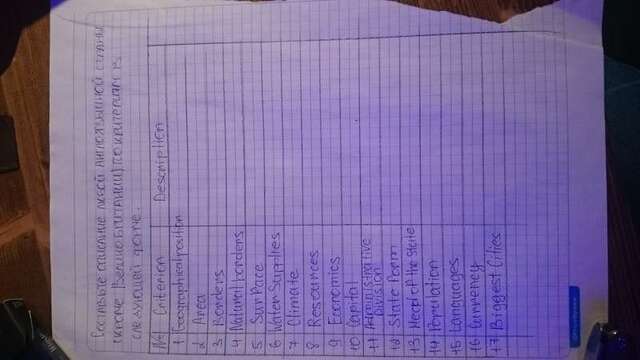 Составьте описание любой англоязычной страны
(кроме Великобритании) по критериям в
следующей форме.
№ Criterion Description
1 Geographical position
2 Area
3 Borders
4 Natural borders
5 Surface
6 Water Supplies
7 Climate
8 Resources
9 Economics
10 Capital
11 Administrative
Division
12 State Form
13 Head of the State
14 Population
15 Languages
16 Currency
17 Biggest Cities